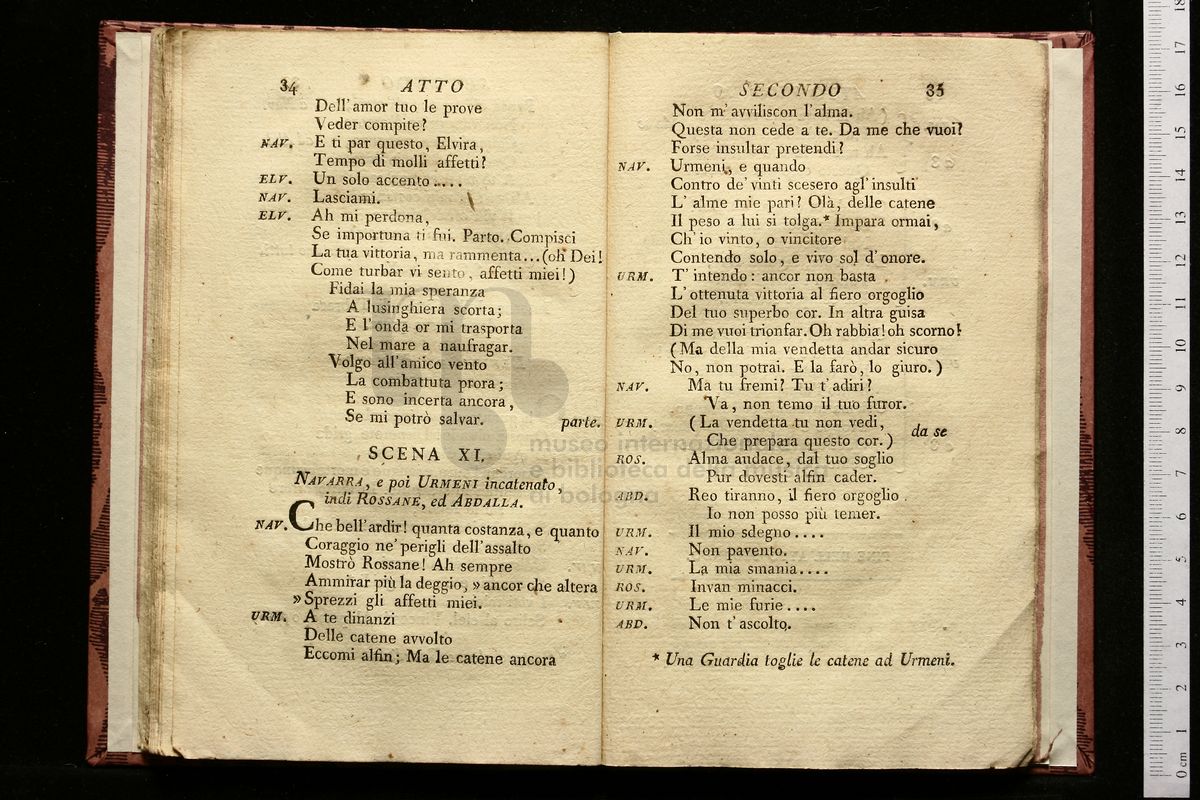 34 ATTO
Dell' amor tuo le prove
Veder compite?
NAV. E ti par questo, Elvira,
Tempo di molli affetti?
ELV. Un solo accento....
NAV. Lasciami.
ELV. Ah mi perdona,
Se importuna ti fui. Parto. Compisci
La tua vittoria, ma rammenta...(oh Dei!
Come turbar vi sento, affetti miei!)
Fidai la mia speranza
A lusinghiera scorta;
E l'onda or mi trasporta
Nel mare a naufragar.
Volgo all'amico vento
La combattuta prora;
E sono incerta ancora,
Se mi potrò salvar. parte.
SCENA XI.
NAVARRA, e poi URMENI incatenato,
indi ROSSANE, ed ABDALLA.
NAV. Che bell'ardir! quanta costanza, e quanto
Coraggio ne' perigli dell'assalto
Mostrò Rossane! Ah sempre
Ammirar più la deggio, » ancor che altera
» Sprezzi gli affetti miei.
URM. A te dinanzi
Delle catene avvolto
Eccomi alfin; Ma le catene ancora
SECONDO 35
Non m' avviliscon l'alma.
Questa non cede a te. Da me che vuoi?
Forse insultar pretendi?
NAV. Urmeni, e quando
Contro de' vinti scesero agl' insulti
L' alme mie pari? Olà, delle catene
Il peso a lui si tolga.* Impara ormai,
Ch' io vinto, o vincitore
Contendo solo, e vivo sol d' onore.
URM. T' intendo: ancor non basta
L' ottenuta vittoria al fiero orgoglio
Del tuo superbo cor. In altra guisa
Di me vuoi trionfar. Oh rabbia! oh scorno!
(Ma della mia vendetta andar sicuro
No, non potrai. E la farò, lo giuro.)
NAV. Ma tu fremi? Tu t' adiri?
Va, non temo il tuo furor.
URM. (La vendetta tu non vedi,
Che prepara questo cor.) da se
ROS. Alma audace, dal tuo soglio
Pur dovesti alfin cader.
ABD. Reo tiranno, il fiero orgoglio
Io non posso più temer.
URM. Il mio sdegno....
NAV. Non pavento.
URM. La mia smania....
ROS. Invan minacci.
URM. Le mie furie....
ABD. Non t' ascolto.
* Una Guardia toglie le catene ad Urmeni.
museo internazionale
e biblioteca della musica
di bologna
0 cm 1 2 3 4 5 6 7 8 9 10 11 12 13 14 15 16 17 18